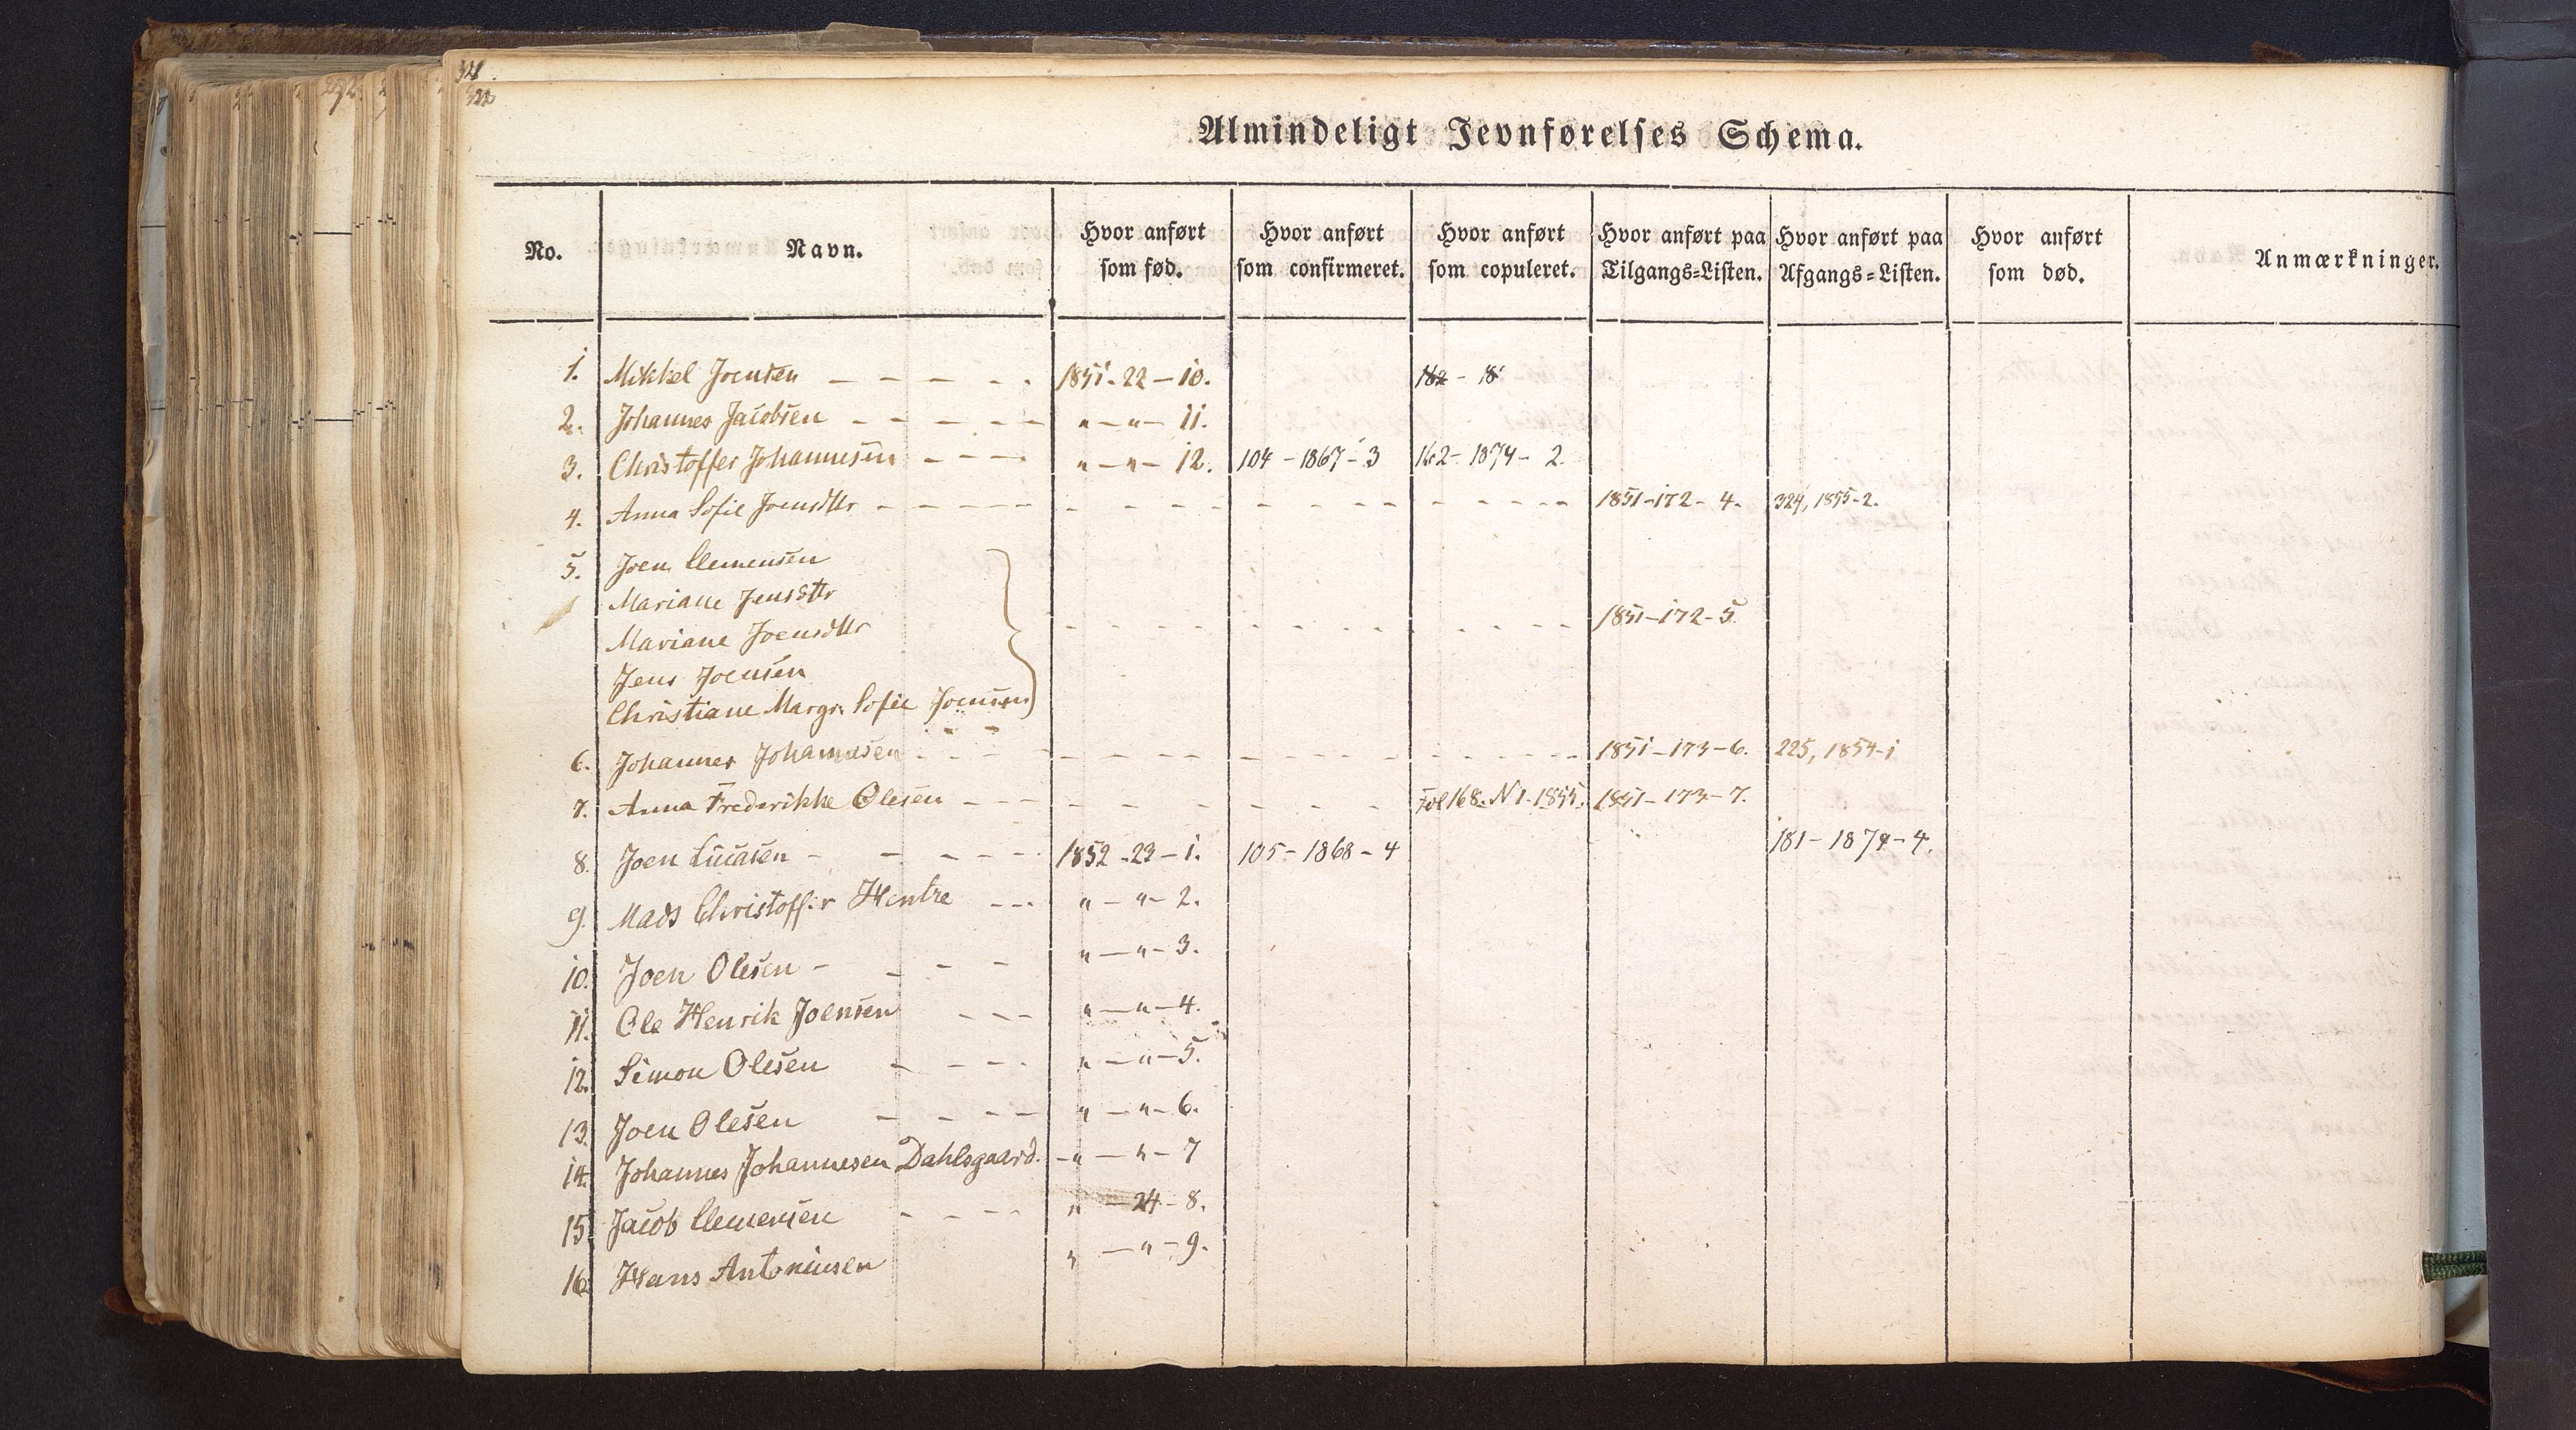 Almindeligt Jevnførelses Schema.
No. Navn. Hvor anført som fød. Hvor anført som confirmeret. Hvor anført som copuleret. Hvor anført paa Tilgangs=Listen. Hvor anført paa Afgangs=Listen. Hvor anført som død. Anmærkninger.
1. Mikkel Joensen - - - - . 1851-22-10.
2. Johannes Jacobsen - - - - - „-„- 11.
3. Christoffer Johannesen - - - „-„- 12. 104-1867-3 162-1874-2.
4. Anna Sofie Joensdttr - - - - - - - - - - - - - - - - - 1851-172-4. 324, 1855-2.
5. Joen Clemensen
Mariane Jensdttr
Mariane Joensdttr - - - - - - - - - - - - 1851-172-5.
Jens Joensen
Christiane Margr. Sofie Joensen
6. Johannes Johannesen - - - - - - - - - - - - - - - - 1851-173-6. 225, 1854-1
7. Anna Frederikke Olesen - - - - - - - - - - - Fol 168. N 1-1855. 1851-173-7.
8. Joen Lucasen - - - - - 1852-23-1. 105-1868-4 181-1874-4.
9. Mads Christoffer Hentze - - - „-„-2.
10. Joen Olesen - - - - „-„-3.
11. Ole Henrik Joensen - - - „-„-4.
12. Simon Olesen - - - - „-„-5.
13. Joen Olesen - - - - „-„-6.
14. Johannes Johannesen Dahlsgaard. -„-„-7
15. Jacob Clemensen - - - - „-24-8.
16. Hans Antoniusen „-„-9.